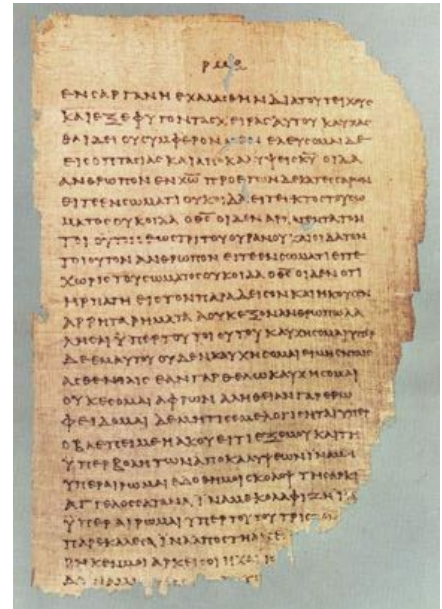 ΕΝϹΑΡΓΑΝΗΕΧΑΛΑϹΘΗΝΔΙΑΤΟΥΤΕΙΧΟΥϹ
ΚΑΙΕΞΕΦΥΓΟΝΤΑϹΧΕΙΡΑϹΑΥΤΟΥΚΑΥΧΑϹ
ΘΑΙΔΕΙΟΥϹΥΜΦΕΡΟΝΜΕΝΕΛΕΥϹΟΜΑΙΔΕ
ΕΙϹΟΠΤΑϹΙΑϹΚΑΙΑΠΟΚΑΛΥΨΕΙϹΚ̅Υ̅ΟΙΔΑ
ΑΝΘΡΩΠΟΝΕΝΧ̅Ω̅ΠΡΟΕΤΩΝΔΕΚΑΤΕϹϹΑΡΩΝ
ΕΙΤΕΕΝϹΩΜΑΤΙΟΥΚΟΙΔΑΕΙΤΕΕΚΤΟϹΤΟΥϹΩ
ΜΑΤΟϹΟΥΚΟΙΔΑΟΘ̅Ϲ̅ΟΙΔΕΝΑΡΠΑΓΕΝΤΑΤΟΝ
ΤΟΙΟΥΤΟΝΕΩϹΤΡΙΤΟΥΟΥΡΑΝΟΥΚΑΙΟΙΔΑΤΟΝ
ΤΟΙΟΥΤΟΝΑΝΘΡΩΠΟΝΕΙΤΕΕΝϹΩΜΑΤΙΕΙΤΕ
ΧΩΡΙϹΤΟΥϹΩΜΑΤΟϹΟΥΚΟΙΔΑΟΘ̅Ϲ̅ΟΙΔΕΝΟΤΙ
ΗΡΠΑΓΗΕΙϹΤΟΝΠΑΡΑΔΕΙϹΟΝΚΑΙΗΚΟΥϹΕΝ
ΑΡΡΗΤΑΡΗΜΑΤΑΑΟΥΚΕΞΟΝΑΝΘΡΩΠΩΛΑ
ΛΗϹΑΙΫΠΕΡΤΟΥΤΟΙΟΥΤΟΥΚΑΥΧΗϹΟΜΑΙΥΠΕΡ
ΔΕΕΜΑΥΤΟΥΟΥΔΕΝΚΑΥΧΗϹΟΜΑΙΕΙΜΗΕΝΤΑΙϹ
ΑϹΘΕΝΕΙΑΙϹΕΑΝΓΑΡΘΕΛΩΚΑΥΧΗϹΟΜΑΙ
ΟΥΚΕϹΟΜΑΙΑΦΡΩΝΑΛΗΘΕΙΑΝΓΑΡΕΡΩ
ΦΕΙΔΟΜΑΙΔΕΜΗΤΙϹΕΜΕΛΟΓΙϹΗΤΑΙΥΠΕΡ
ΟΒΛΕΠΕΙΜΕΗΑΚΟΥΕΙΤΙΕΞΕΜΟΥΚΑΙΤΗ
ΫΠΕΡΒΟΛΗΤΩΝΑΠΟΚΑΛΥΨΕΩΝΙΝΑΜΗ
ΥΠΕΡΑΙΡΩΜΑΙΕΔΟΘΗΜΟΙϹΚΟΛΟΨΤΗϹΑΡΚΙ
ΑΓΓΕΛΟϹϹΑΤΑΝΑΪΝΑΜΕΚΟΛΑΦΙΖΗΙ
ΫΠΕΡΑΙΡΩΜΑΙΥΠΕΡΤΟΥΤΟΥΤΡΙϹ
ΠΑΡΕΚΑΛΕϹΑΪΝΑΑΠΟϹΤΗΑ
ΡΗΚΕΝΜΟΙΑΡΚΕΙϹΟΙΗΧΑ